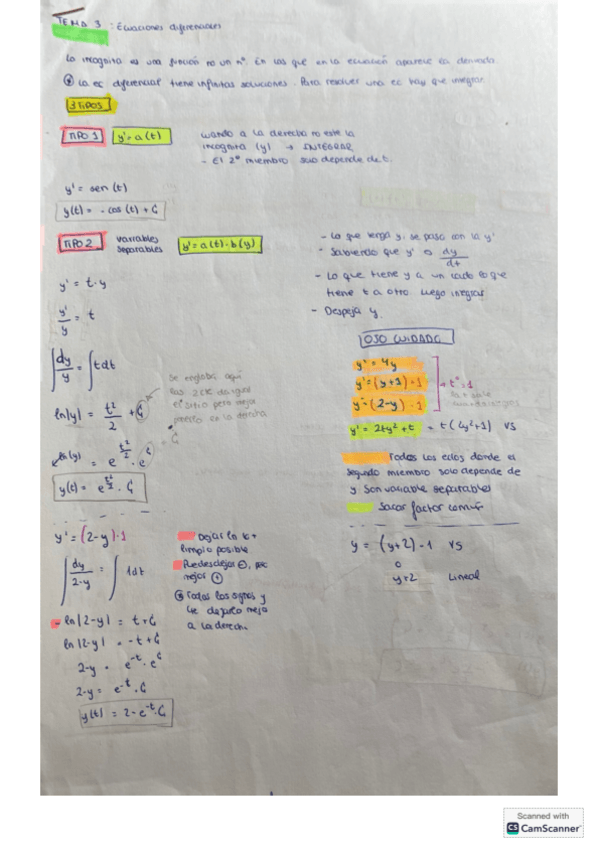 TEMA 3: Ecuaciones diferenciales
La incognita es una función no un nº. En las que en la ecuación aparece la derivada
La ec diferencial tiene infinitas soluciones. Para resolver una ec hay que integrar.
3 TIPOS
TIPO 1
y' = a(t)
cuando a la derecha no este la
incognita (y) → INTEGRAR
- El 2º miembro solo depende de t.
y' = sen (t)
y(t) = - cos(t) + C
TIPO 2
variables
separables
y' = a(t)·b(y)
- Lo que tenga y, se pasa con la y'
- Sabiendo que y' es dy/dt
- Lo que tiene y a un lado lo que
tiene t a otro. Luego integras
- Despeja y
y' = t·y
y'/y = t
∫ dy/y = ∫ t dt
ln|y| = t²/2 + C
se engloba aquí
las 2 ctes da igual
el sitio pero mejor
ponerla en la derecha
= e^(t²/2) · e^C = C
y(t) = e^(t²/2) · C
OJO CUIDADO
y' = 4y
y' = (y+1)·1
y' = (2-y)·1
→ t⁰ = 1
y' = 2ty² + t = t(2y²+1) VS
Todas las edos donde el
segundo miembro solo depende de
y son variable separables
Sacar factor común
y = (y+2)·1 VS
o
y=2 Lineal
y' = (2-y)·1
∫ dy/2-y = ∫ 1dt
- ln|2-y| = t+C
ln|2-y| = -t+C
2-y = e^-t · e^C
2-y = e^-t · C
y(t) = 2-e^-t·C
Dejar ln lo +
limpio posible
mejor (+)
Todos los signos y
a la derech.
Scanned with
CS CamScanner